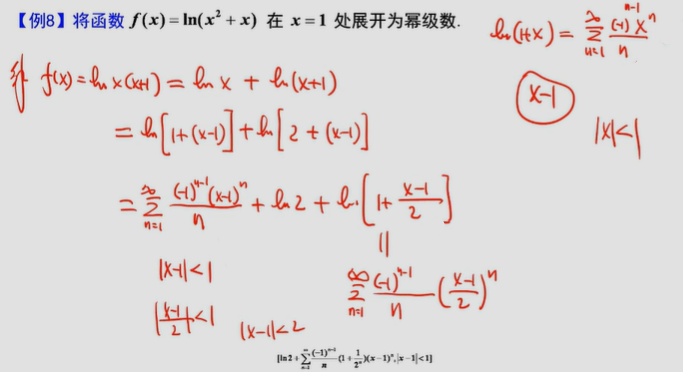 【例8】将函数 f(x)=ln(x²+x) 在 x=1 处展开为幂级数.
ln(1+x) = ∑_{n=1}^{∞} (-1)^{n-1} x^n / n
x-1
|x|<1
解 f(x)=ln x(x+1) = ln x + ln(x+1)
= ln[1+(x-1)] + ln[2+(x-1)]
= ∑_{n=1}^{∞} (-1)^{n-1}(x-1)^n / n + ln2 + ln[1+ (x-1)/2]
||
|x-1|<1
∑_{n=1}^{∞} (-1)^{n-1} / n ((x-1)/2)^n
|(x-1)/2|<1
|x-1|<2
[ln2+∑_{n=1}^{∞} (-1)^{n-1}/n (1+1/2^n)(x-1)^n,|x-1|<1]